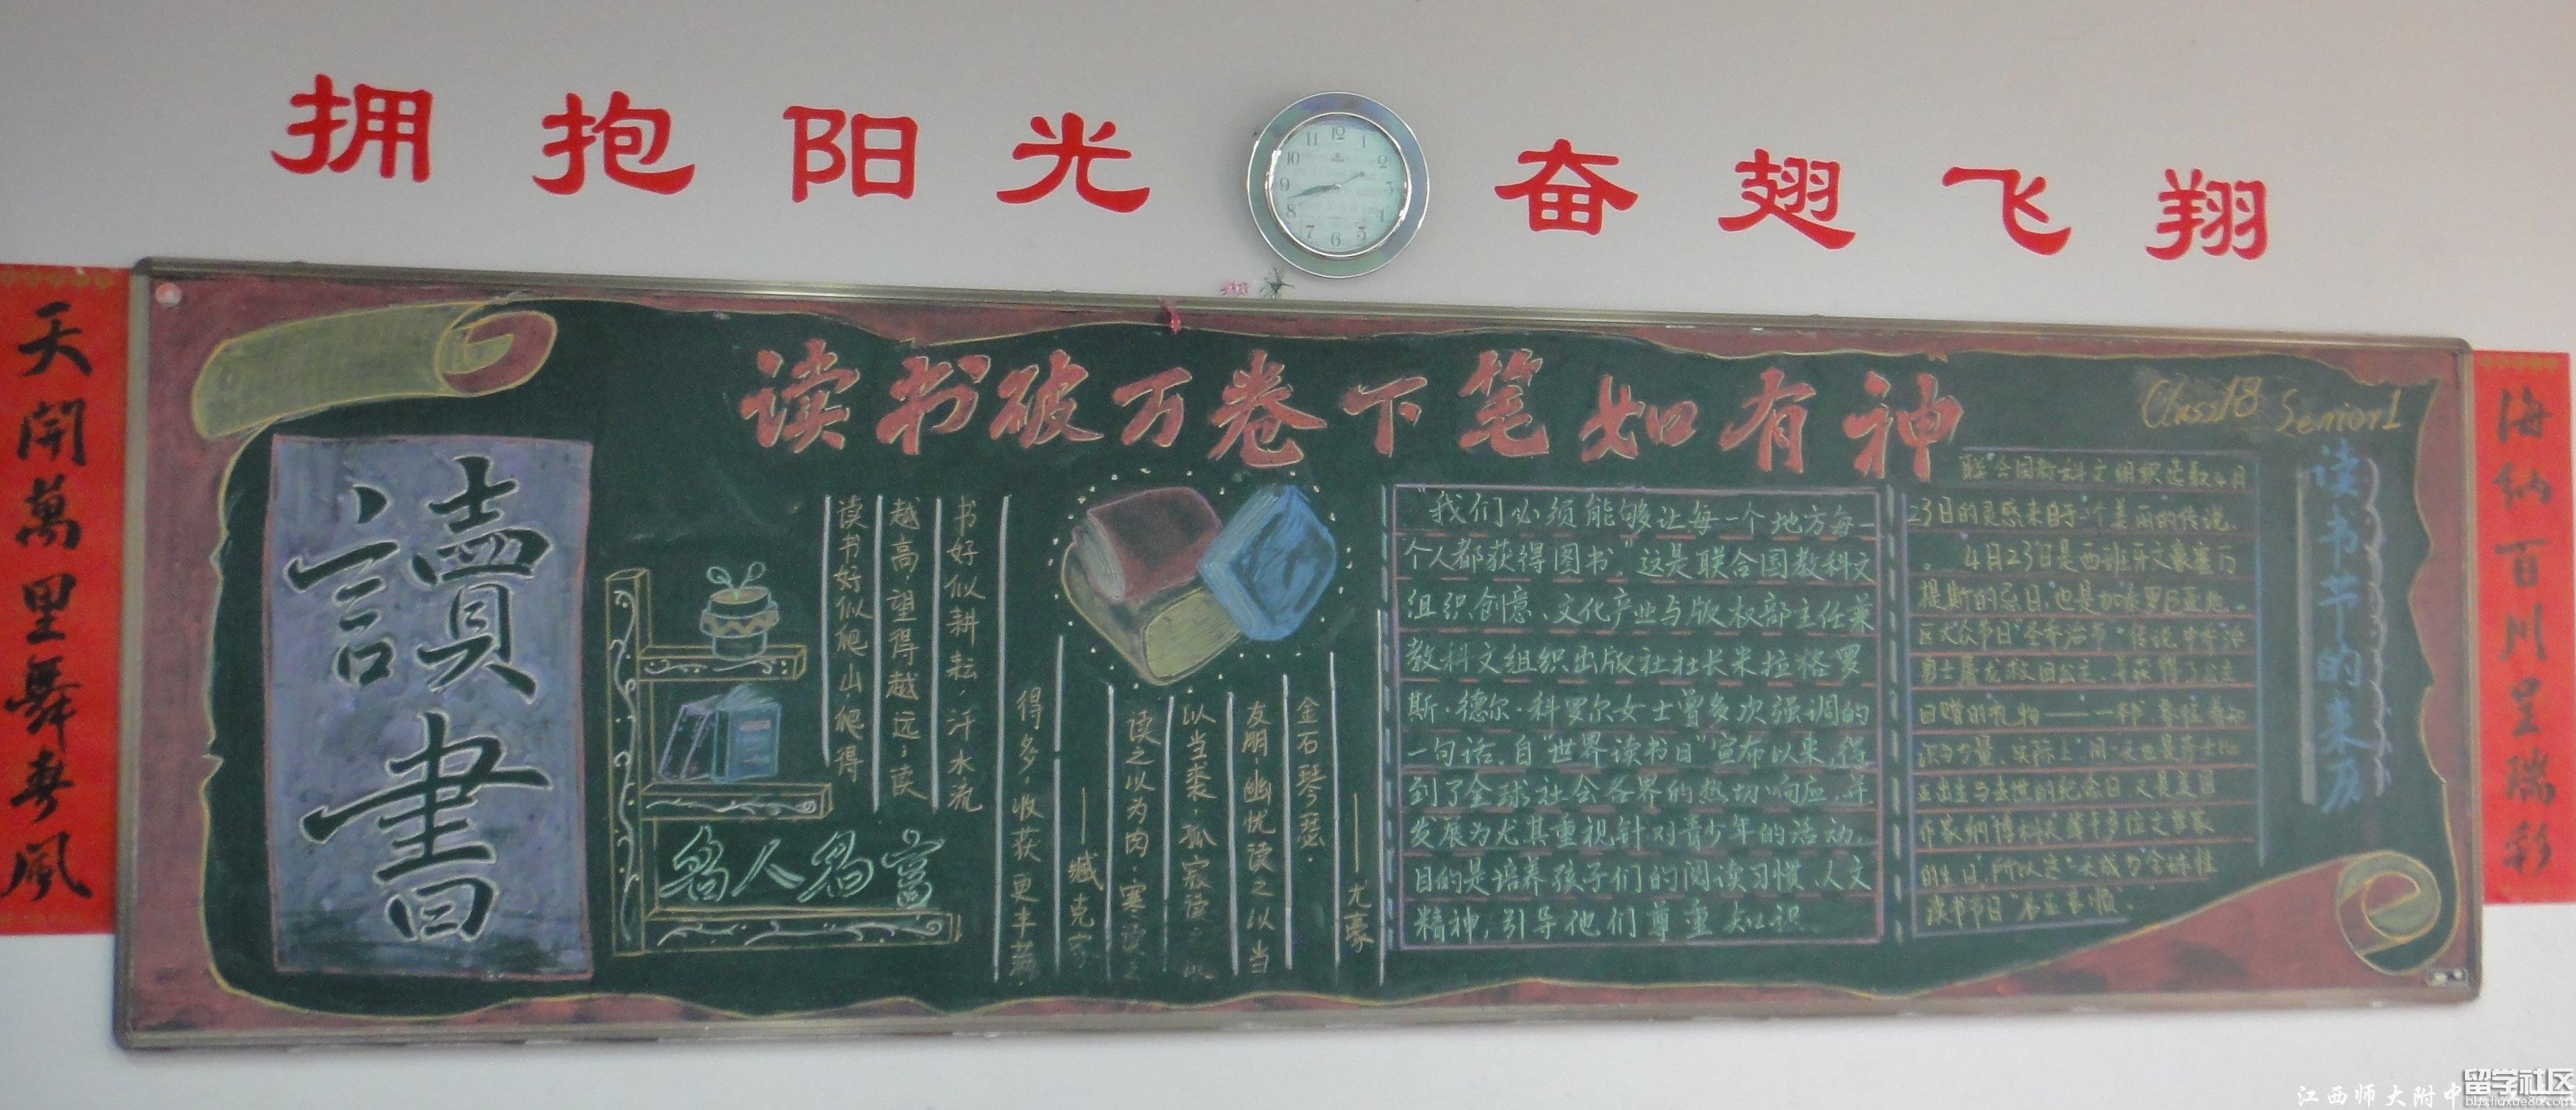 拥抱阳光 奋翅飞翔
天開萬里舞春風
海仙百川呈瑞彩
读书破万卷下笔如有神
Class18 Senior1
讀書
名人名言
书好似耕耘,汗水流
越高,望得越远;读
读书好似爬山爬得
得多,收获更丰满
——臧克家
读之以为肉,寒读之
以当裘,孤寂读之以
友朋,幽忧读之以当
金石琴瑟.
——尤袤
"我们必须能够让每一个地方每一
个人都获得图书."这是联合国教科文
组织创意、文化产业与版权部主任兼
教科文组织出版社社长米拉格罗
斯·德尔·科罗尔女士曾多次强调的
一句话.自"世界读书日"宣布以来,得
到了全球社会各界的热切响应,并
发展为尤其重视针对青少年的活动.
目的是培养孩子们的阅读习惯、人文
精神,引导他们尊重知识.
读书节的来历
联合国教科文组织选取4月
23日的灵感来自于一个美丽的传说.
4月23日是西班牙文豪塞万
提斯的忌日,也是加泰罗尼亚地
区大众节日"圣乔治节".传说中乔治
勇士屠龙救回公主,并获得了公主
回赠的礼物——一本书,象征着知
识与力量.实际上,同一天也是莎士比
亚出生与去世的纪念日,又是美国
作家纳博科夫等十多位文学家
的生日,所以这一天成为全球性
读书节日"名正言顺".
江西师大附中
留学社区
bbs.liuxue86.com